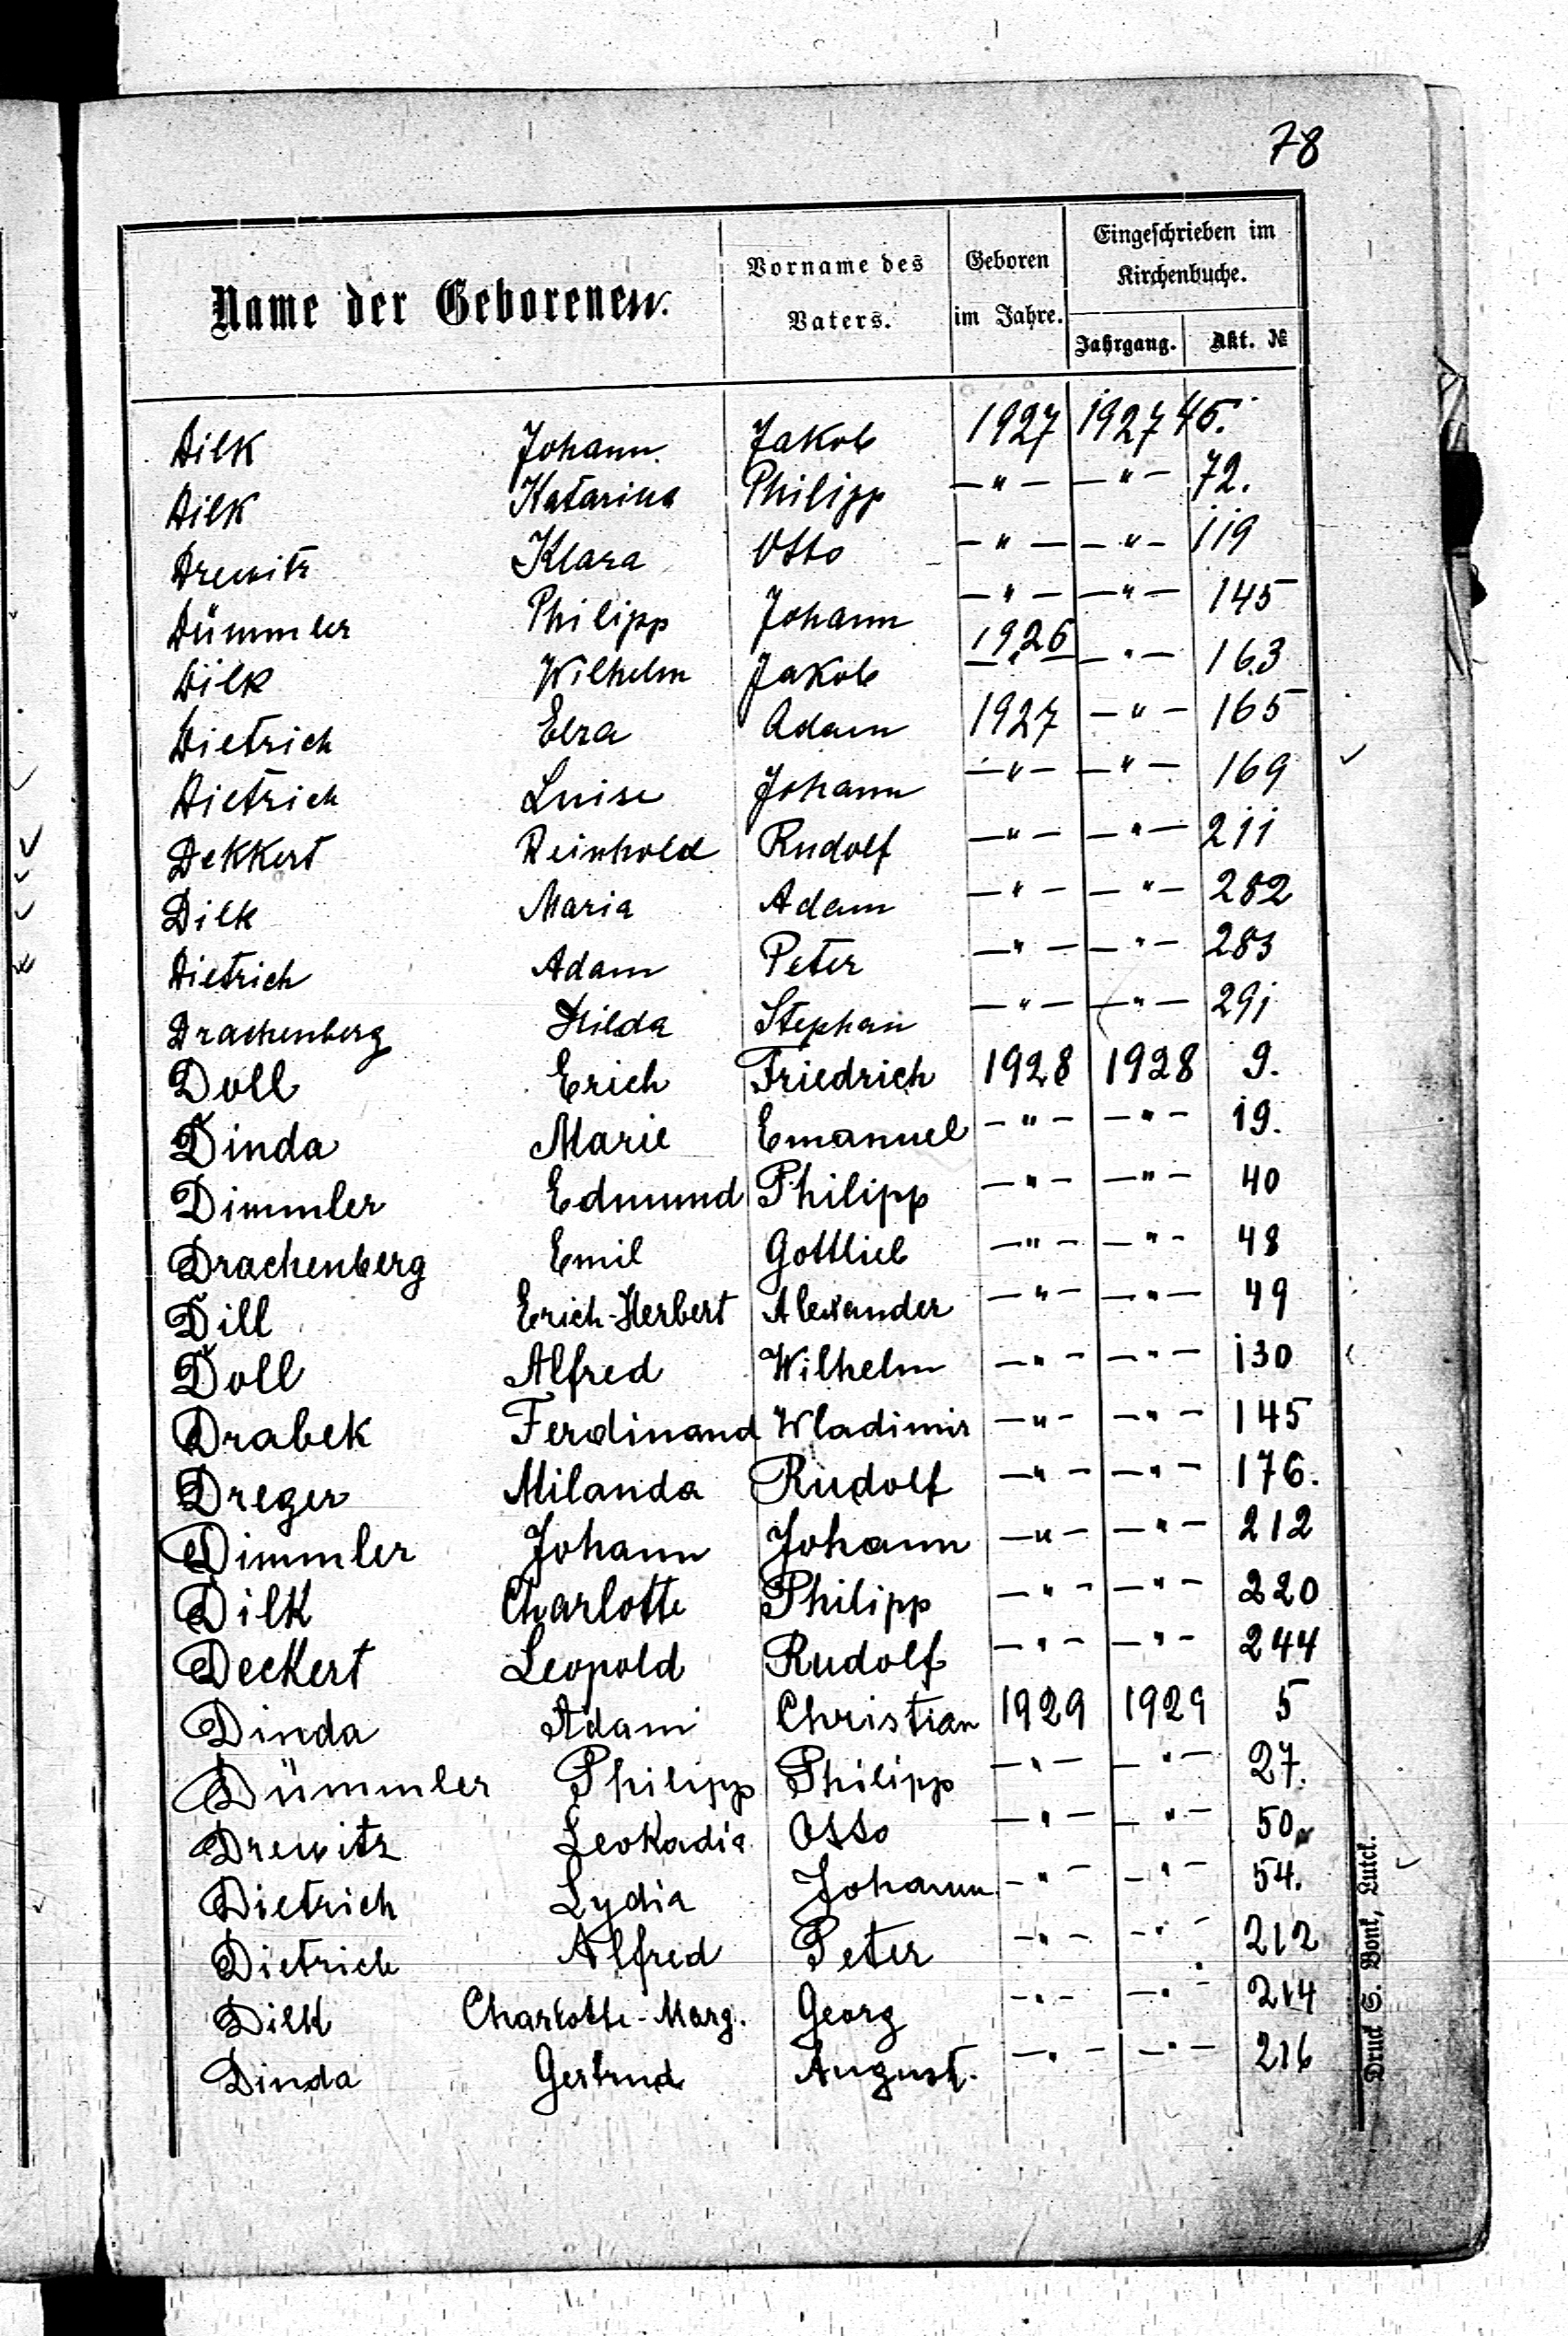 78
Name der Geborenen.
Vorname des Vaters.
Geboren im Jahre.
Eingeschrieben im Kirchenbuche.
Jahrgang. Akt. №
Dilk Johann Jakob 1927 1927 45.
Dilk Katarina Philipp —"— —"— 72.
Drewitz Klara Otto —"— —"— 119
Dümmler Philipp Johann —"— —"— 145
Dilk Wilhelm Jakob 1926 —"— 163
Dietrich Elza Adam 1927 —"— 165
Dietrich Luise Johann —"— —"— 169
Dekkert Reinhold Rudolf —"— —"— 211
Dilk Maria Adam —"— —"— 282
Dietrich Adam Peter —"— —"— 283
Drachenberg Hilda Stephan —"— —"— 291
Doll Erich Friedrich 1928 1928 9.
Dinda Marie Emanuel —"— —"— 19.
Dimmler Edmund Philipp —"— —"— 40
Drachenberg Emil Gottlieb —"— —"— 48
Dill Erich-Herbert Alexander —"— —"— 49
Doll Alfred Wilhelm —"— —"— 130
Drabek Ferdinand Wladimir —"— —"— 145
Dreger Milanda Rudolf —"— —"— 176.
Dimmler Johann Johann —"— —"— 212
Dilk Charlotte Philipp —"— —"— 220
Deckert Leopold Rudolf —"— —"— 244
Dinda Adam Christian 1929 1929 5
Dümmler Philipp Philipp —"— —"— 27.
Drewitz Leokadia Otto —"— —"— 50
Dietrich Lydia Johann —"— —"— 54.
Dietrich Alfred Peter —"— —"— 212
Dilk Charlotte-Marg. Georg —"— —"— 214
Dinda Gertrud August. —"— —"— 216
Druck S. Bonk, Luck.